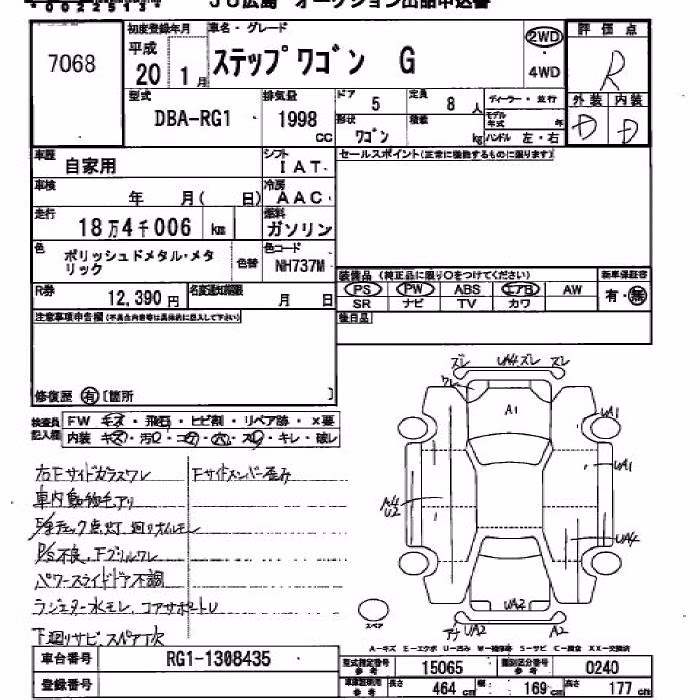 JU広島 オークション出品申込書
7068
初度登録年月
平成
20 1 月
車名・グレード
ステップワゴン G
2WD
4WD
評価点
R
外装 内装
D D
型式
DBA-RG1
排気量
1998 cc
ドア 5
定員 8 人
形状 ワゴン
積載 kg
ディーラー・並行
モデル年式 年
ハンドル 左・右
車歴 自家用
シフト I AT
車検 年 月( 日)
冷房 A AC
走行 18万4千006 km
燃料 ガソリン
色 ポリッシュドメタル・メタリック
色替
色コード NH737M
R券 12,390 円
名変通知期限 月 日
セールスポイント(正常に機能するものに限ります)
装備品(純正品に限り〇をつけてください)
PS PW ABS エアB AW
SR ナビ TV カワ
新車保証書
有・無
後日品
注意事項申告欄(不具合内容等は具体的に記入して下さい)
修復歴 有 〔箇所 〕
検査員記入欄
FW キズ・飛石・ヒビ割・リペア跡・×要
内装 キズ・汚レ・コゲ・穴・スレ・キレ・破レ
右Fサイドガラスワレ
Fサイドメンバー歪み
車内動物毛アリ
E/gチェック点灯 廻りオイルモレ
P/S不良、Fグリルワレ
パワースライドドア不調
ラジエター水モレ、コアサポートU
下廻りサビ、スペア欠
ズレ UA4ズレ ズレ
ワレ
A1
UA1
UA1
U2
UA4
UA2
UA2 A2
スペア
A-キズ E-エクボ U-凹み W-補修跡 S-サビ C-腐食 XX-交換済
車台番号 RG1-1308435
登録番号
型式指定番号 参考 15065
類別区分番号 参考 0240
車庫証明用 参考
長さ 464 cm
幅: 169 cm
高さ 177 cm